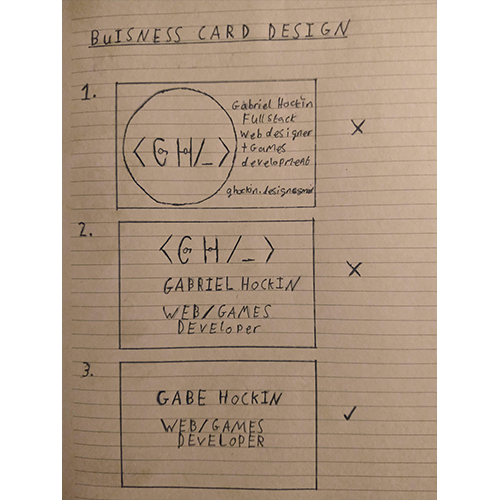 BUISNESS CARD DESIGN
1.
Gabriel Hockin
Full stack
Web designer
+ Games
development
<GH/_>
ghockin.design@gmail
X
2.
<GH/_>
GABRIEL HOCKIN
WEB/GAMES
DEVELOPER
X
3.
GABE HOCKIN
WEB/GAMES
DEVELOPER
✓